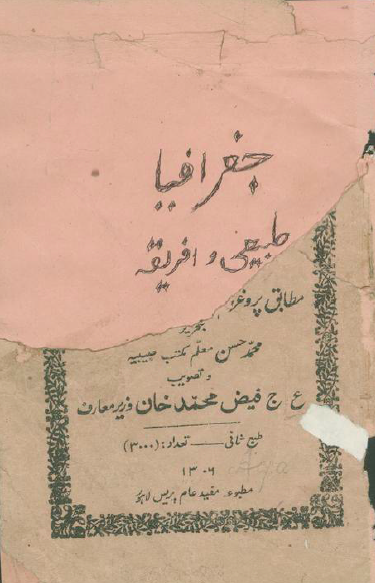 جغرافیا
طبیعی و افریقه
مطابق پروغر
محمد حسن معلم مکتب حبیبیه
و تصویب
ع ج فیض محمد خان وزیر معارف
طبع ثانی — تعداد: (۳۰۰۰)
۱۳۰۶
مطبوعہ مفید عام پریس لاہور